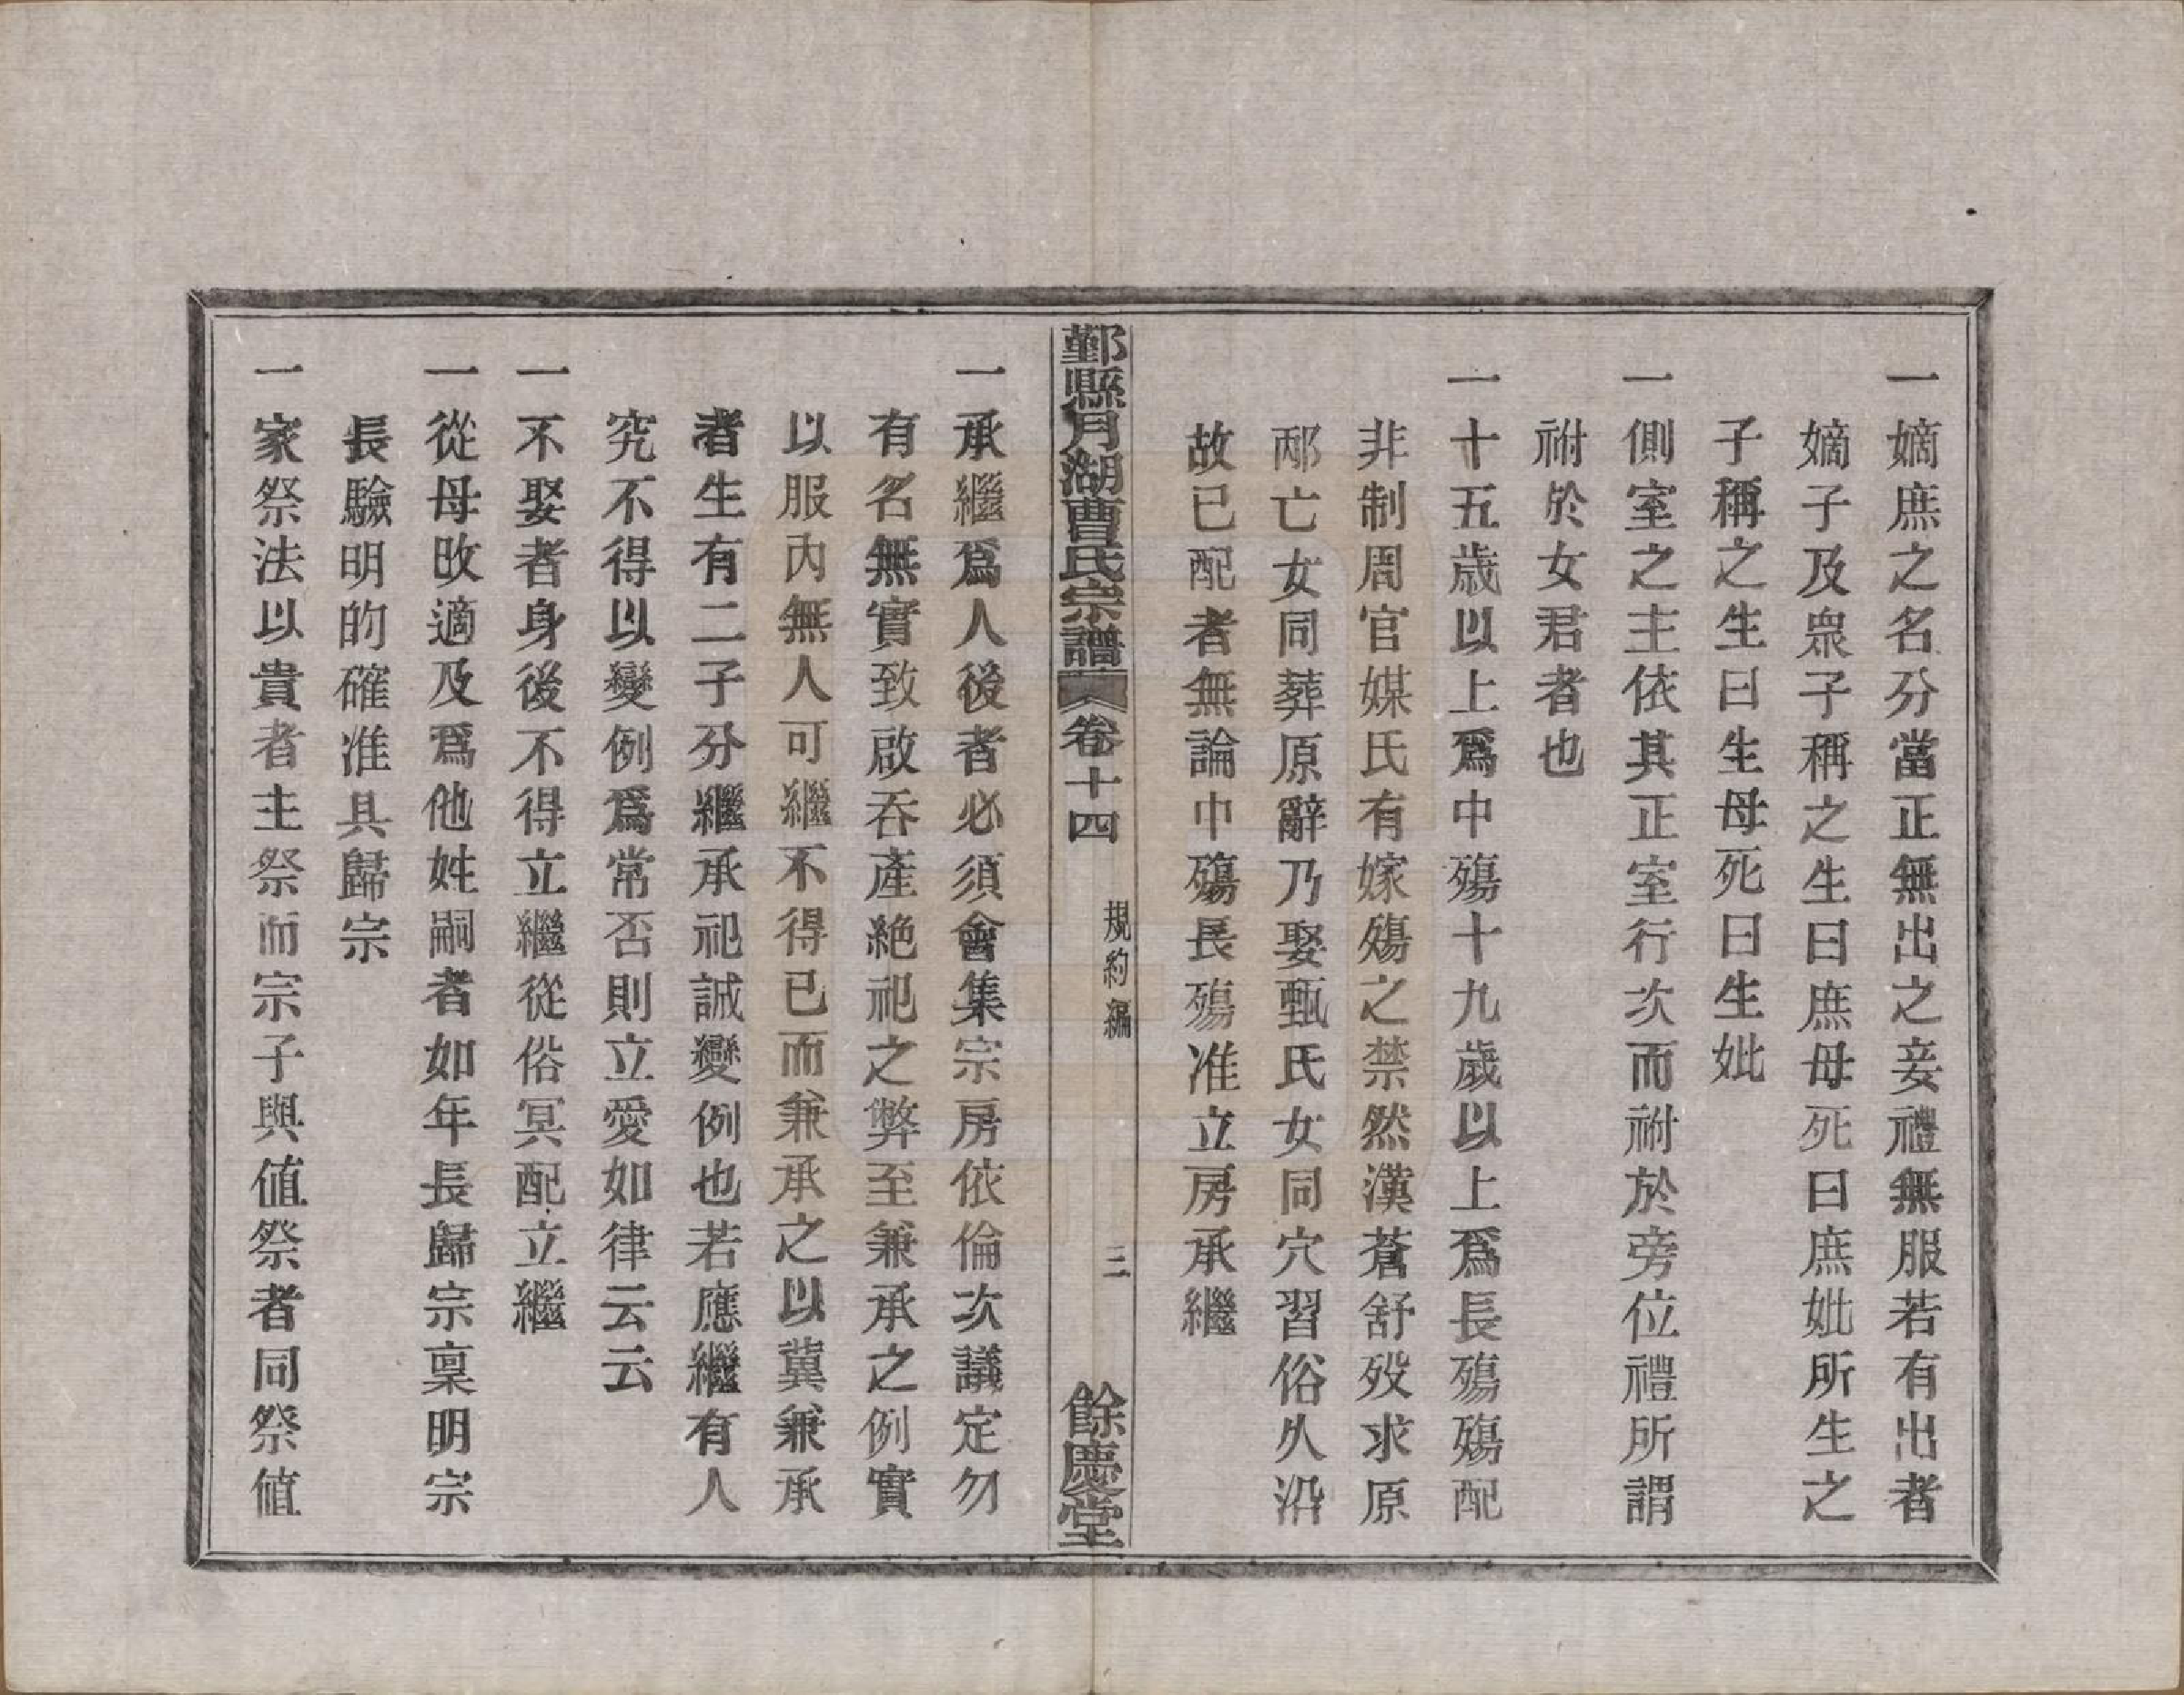 一嫡庶之名分當正無出之妾禮無服若有出者
嫡子及衆子稱之生曰庶母死曰庶妣所生之
子稱之生曰生母死曰生妣
一側室之主依其正室行次而祔於旁位禮所謂
祔於女君者也
一十五歲以上爲中殤十九歲以上爲長殤殤配
非制周官媒氏有嫁殤之禁然漢蒼舒歿求原
邴亡女同葬原辭乃娶甄氏女同穴習俗久沿
故已配者無論中殤長殤准立房承繼
鄞縣月湖曹氏宗譜 卷十四 規約編 三 餘慶堂
一承繼爲人後者必須會集宗房依倫次議定勿
有名無實致啟吞產絶祀之弊至兼承之例實
以服內無人可繼不得已而兼承之以冀兼承
者生有二子分繼承祀誠變例也若應繼有人
究不得以變例爲常否則立愛如律云云
一不娶者身後不得立繼從俗冥配立繼
一從母改適及爲他姓嗣者如年長歸宗稟明宗
長驗明的確准具歸宗
一家祭法以貴者主祭而宗子與值祭者同祭值